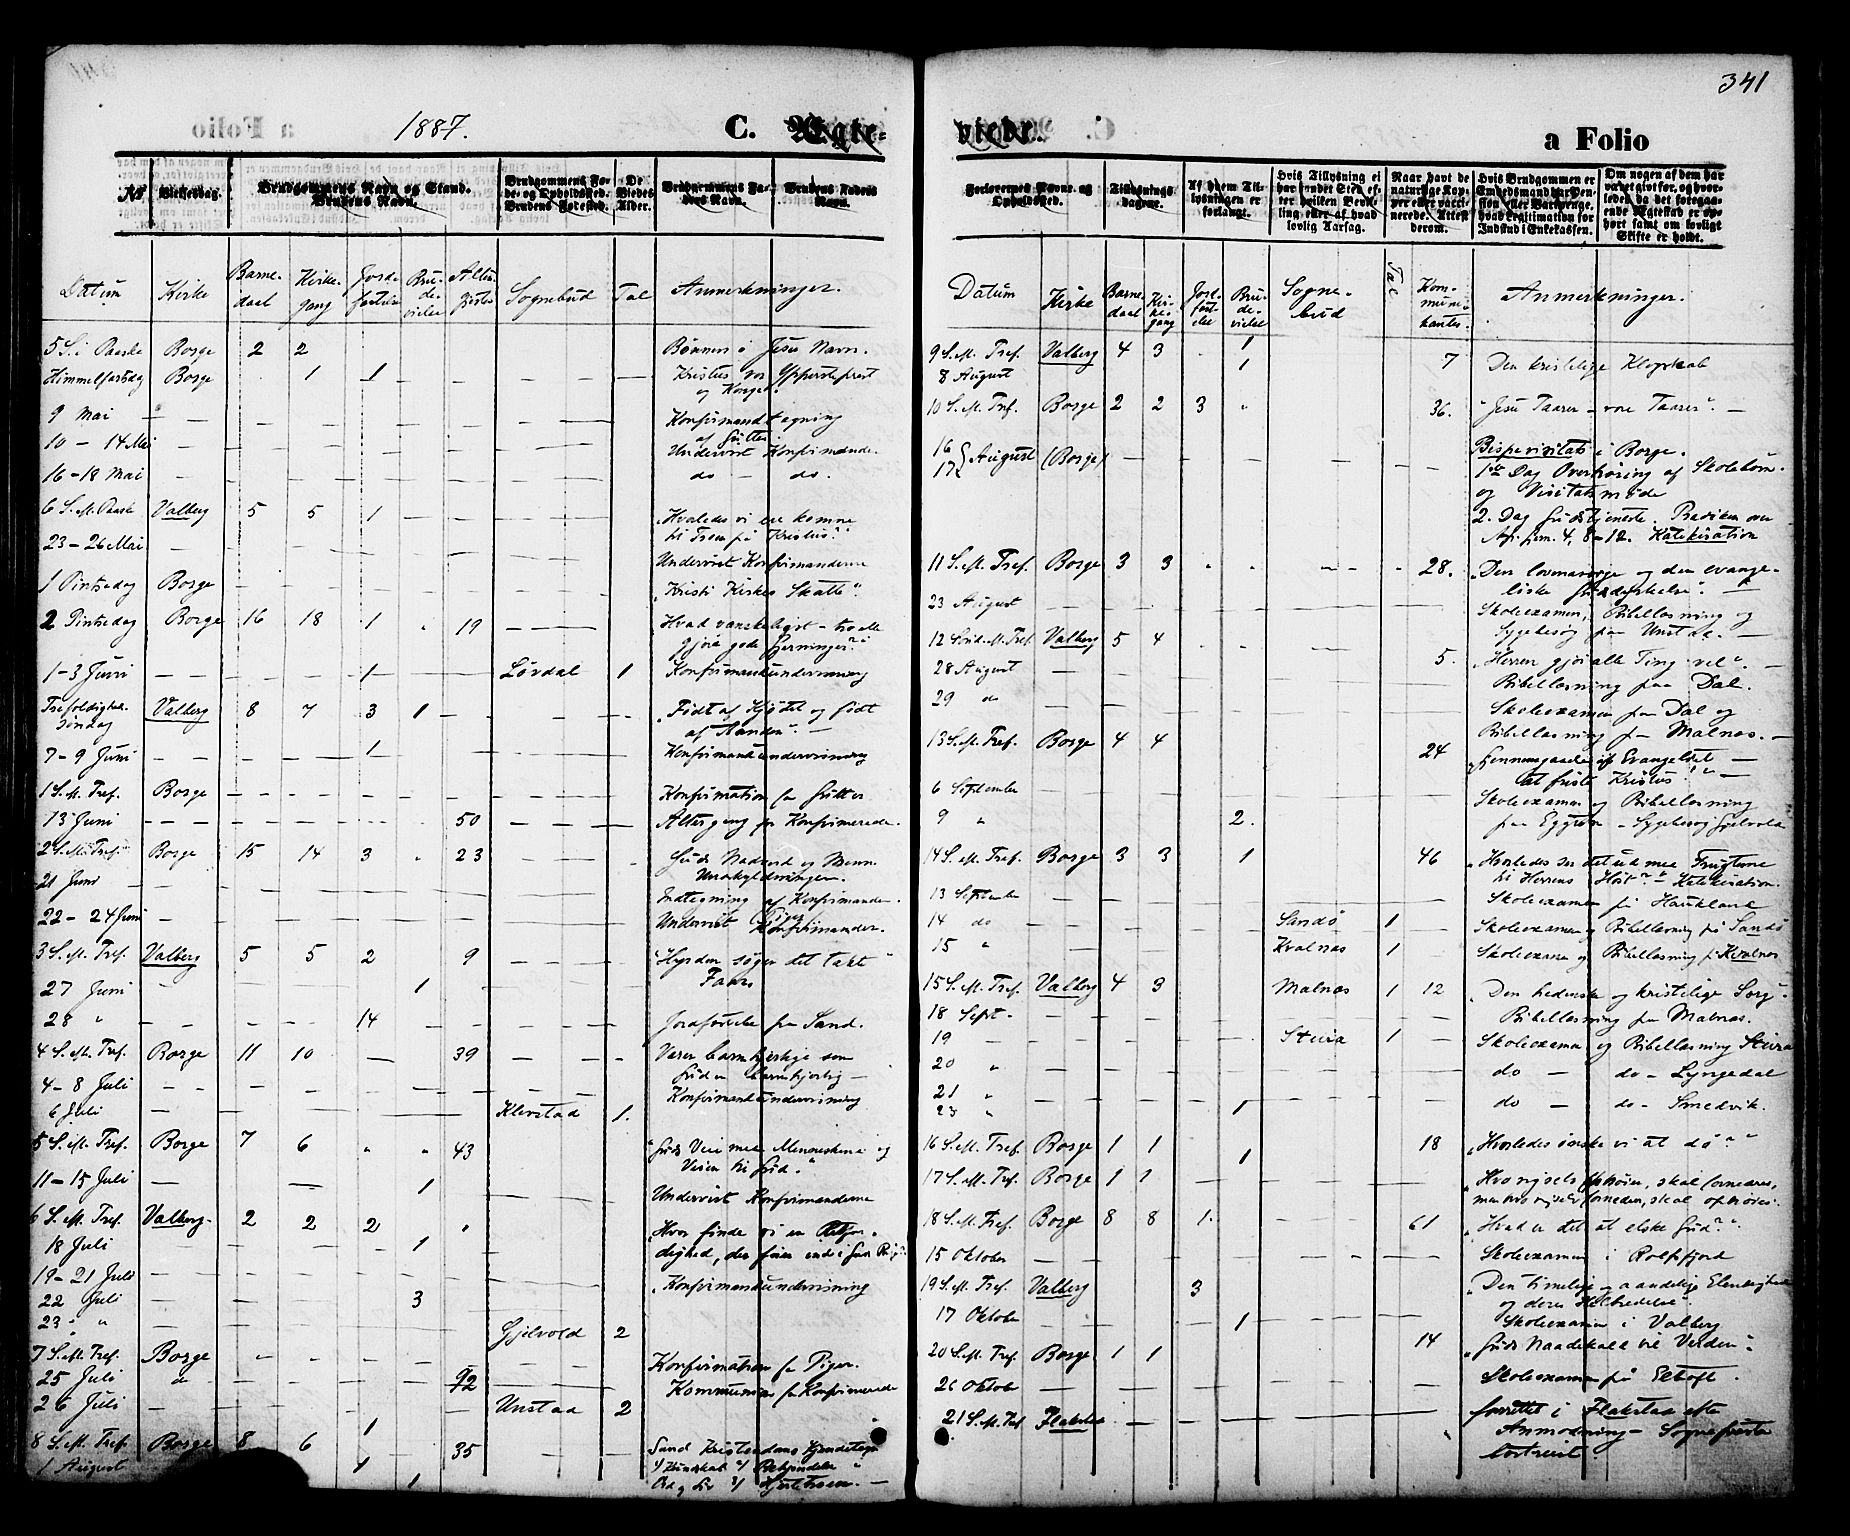 341
1887.
C. Ægte-
viede.
a Folio
No.
Vielsesdag.
Brudgommens Navn og Stand.
Brudens Navn.
Brudgommens Fø-
de- og Opholdssted.
Brudens Fødested.
De
Viedes
Alder.
Brudgommens Fa-
ders Navn.
Brudens Faders
Navn.
Forloverens Navne og
Opholdssted.
Tillysnings
dagene.
Af hvem Til-
lysningen er
forlangt.
Hvis Tillysning ei
har fundet Sted ef-
ter hvilken Bevil-
ling eller af hvad
lovlig Aarsag.
Naar havt de
naturlige Kop-
per eller vacci-
nerede. Attest
derom.
Hvis Brudgommen er
Embedsmand har Pen-
sion eller Vartpenge,
hvad Legitimation for
Indskud i Enkekassen.
Om nogen af dem har
været givt før, og hvor-
ledes, da det foregaa-
ende Ægteskab er op-
hørt samt om lovligt
Skifte er holdt.
Datum Kirke Barne-daab Kirke-gang Jords-fæstelse Bru-de-vielse Alter-gjester Sognebud Tal Anmerkninger.
5 S. i Paaske Borge 2 2 Bønnen i Jesu Navn.
Himmelfartsdag Borge 1 1 Kristus vor Ypperstepræst
og Konge.
9 Mai Konfirmandtegning
af Gutter.
10 - 14 Mai Undervist Konfirmander
16-18 Mai do - do.
6 S. M. Paaske Valberg 5 5 1 „Hvaledes vi ere komne
til Troen på Kristus?“
23-26 Mai Undervist Konfirmanderne
1 Pintsedag Borge „Kristi Kirkes Skatte“
2 Pintsedag Borge 16 18 1 „ 19 „Hvad vanskeligst - tro elle
gjøre gode Gjerninger?“
1-3 Juni 1 Løvdal 1 Konfirmandundervisning
Trefoldigheds
søndag Valberg 8 7 3 1 „Født af Kjødet og født
af Aanden“.
7-9 Juni 1 Konfirmandundervisning
1 S. M. Tref. Borge Konfirmation for Gutter
13 Juni 50 Altergang for Konfirmerede.
2 S. M. Tref. Borge 15 14 3 „ 23 Guds Nadverd og Menn.
Undskyldninger.
21 Juni Indtegning af Konfirmander.
22-24 Juni Undervist Piger Konfirmander.
3 S. M. Tref. Valberg 5 5 2 9 „Hyrden søger det tabte
Faar“
27 Juni 1
28 „ 14 Jordfæstelse paa Sand.
4 S. M. Tref. Borge 11 10 39 Værer barmhjertige som
Gud er barmhjertig
4-8 Juli Konfirmandundervisning
6 Juli Klevstad 1.
5 S. M. Tref. Borge 7 6 „ „ 43 „Guds Veie med Menneskene og
Veien til Gud.“
11-15 Juli 1 Undervist Konfirmanderne
6 S. M. Tref. Valberg 2 2 2 „ „Hvor finde vi en Retfær-
dighed, der fører ind i Guds Rig?“
18 Juli 1
19-21 Juli Konfirmandundervisning
22 Juli 3
23 „ Gjelvold 2
7 S. M. Tref. Borge Konfirmation for Piger.
25 Juli 92 Kommunion for Konfirmerede
26 Juli Unstad 2
8 S. M. Tref. Borge 8 6 1 35 Sand Kristendoms Kjendetegn
1 August 1 1 1/ Kundskab 2/ Bekjendelse
Ord og Liv 3/ Hjertetroen.
Datum Kirke Barne-daab Kir-ke-gang Jord-fæst-else Bru-de-vielse Sogne-bud Tal Kom-muni-kanter. Anmerkninger.
9 S. M. Tref. Valberg 4 3 1 7 Den kristelige Klogskab
8 August 1
10 S. M. Tref. Borge 2 2 3 „ 36. „Jesu Taarer - vore Taarer“.
16
17 August (Borge) Bispevisitats i Borge.
1ste Dag Overhøring af Skolebørn
og Visitatsmøde
2. Dag Gudstjeneste. Prædiken over
Ap. Gjern. 4, 8-12. Katekisation
11 S. M. Tref. Borge 3 3 28. „Den lovmæssige og den evange-
liske Gudsdyrkelse“.
23 August Skoleexamen, Bibellæsning og
Sygebesøg paa Unstad.
12 Sønd. M. Tref. Valberg 5 4 5. „Herren gjør alle Ting vel“.
28 August Bibellæsning paa Dal.
29 do Skoleexamen paa Dal og
Bibellæsning paa Malnæs.
13 S. M. Tref. Borge 4 4 24 „Gjennemgaaelse af Evangeliet
at friste Kristus!“
6 September Skoleexamen og Bibellæsning
9 „ 2. paa Eggum - Sygebesøg Gjelvold
14 S. M. Tref. Borge 3 3 1 46 „Hvorledes ser det ud med Frugterne
til Herrens Høst?“ Katekisation.
13 September Skoleexamen på Haukland
14 do Sandø 1 Skoleexamen og Bibellæsning på Sandø
15 „ Kvalnæs 1 Skoleexamen og Bibellæsning på Kvalnæs
15 S. M. Tref. Valberg 4 3 Malnæs 1 12 „Den hedenske og kristelige Sorg“.
18 Sept. Bibellæsning paa Malnæs.
19 Steira 1 Skoleexamen og Bibellæsning Steira
20 „ do - do - Lyngedal
21 „
23 „ 1 do - do - Smedvik.
16 S. M. Tref. Borge 1 1 1 18 „Hvorledes ønske vi at dø?“
17 S. M. Tref. Borge 1 1 „Hvo sig selv ophøier, skal fornedres,
men hvo sig selv fornedrer, skal ophøies.
18 S. M. Tref. Borge 8 8 1. 61 „Hvad er det at elske Gud?“
15 Oktober Skoleexamen i Rolfsfjord
19 S. M. Tref. Valberg 3 „Den timelige og aandelige Elendighed
og deres Helbredelse“.
17 Oktober 1 Skoleexamen i Valberg
20 S. M. Tref. Borge 1 1 14 „Guds Naadekald til Verden“
26 Oktober Skoleexamen på
21 S. M. Tref. Flakstad forrettet i Flakstad efter
Anmodning - Sognepræsten
bortreist.